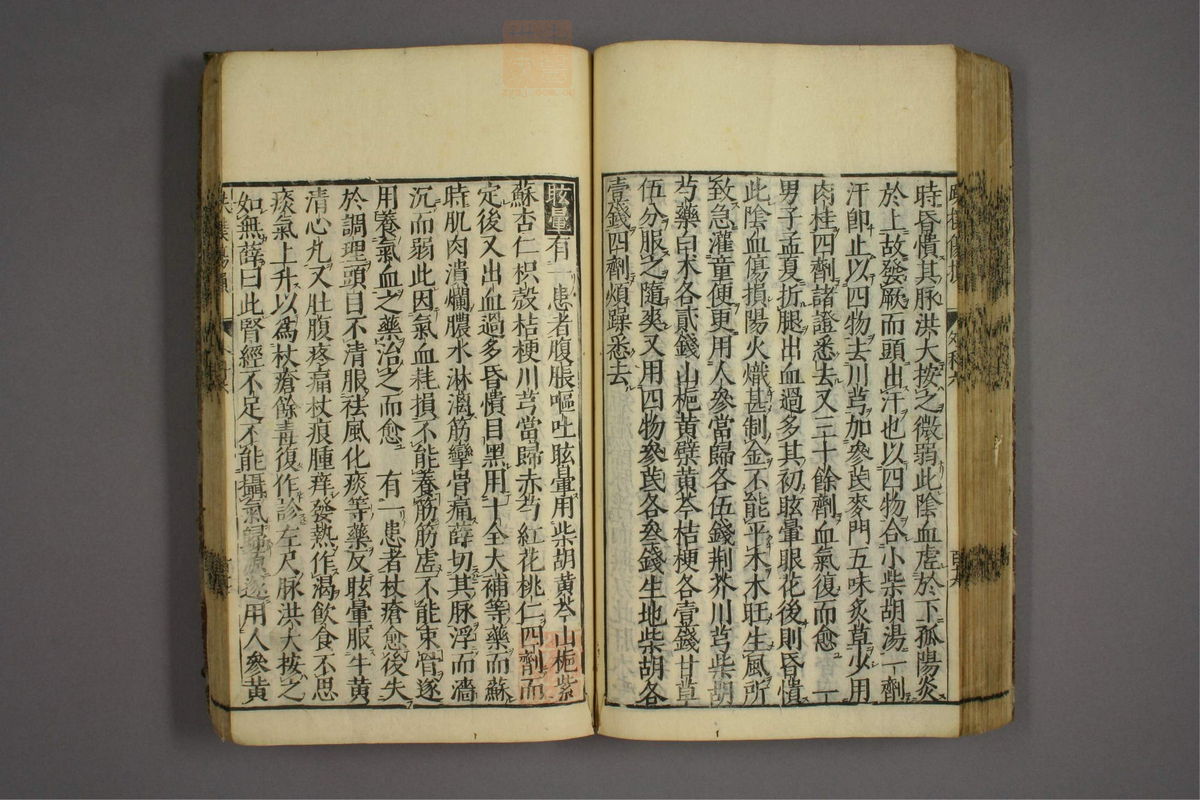 時昏憒其脉洪大按之微弱此陰血虚於下孤陽炎
於上故發厥而頭出汗也以四物合小柴胡湯一劑
汗即止以四物去川芎加參芪麥門五味炙草少用
肉桂四劑諸證悉去又三十餘劑血氣復而愈 一
男子孟夏折腿出血過多其初眩暈眼花後則昏憒
此陰血傷損陽火熾甚制金不能平木木旺生風所
致急灌童便更用人參當歸各伍錢荆芥川芎柴胡
芍藥白术各貳錢山梔黃檗黃芩桔梗各壹錢甘草
伍分服之隨爽又用四物參芪各叁錢生地柴胡各
壹錢四劑煩躁悉去
眩暈有一患者腹脹嘔吐眩暈用柴胡黃芩山梔紫
蘇杏仁枳殼桔梗川芎當歸赤芍紅花桃仁四劑而
定後又出血過多昏憒目黑用十全大補等藥而蘇
時肌肉潰爛膿水淋漓筋攣骨痛薛切其脉浮而濇
沉而弱此因氣血耗損不能養筋筋虚不能束骨遂
用養氣血之藥治之而愈 有一患者杖瘡愈後失
於調理頭目不清服祛風化痰等藥反眩暈服牛黃
清心丸又肚腹疼痛杖痕腫痒發熱作渴飲食不思
痰氣上升以爲杖瘡餘毒復作診左尺脉洪大按之
如無薛曰此腎經不足不能攝氣歸源遂用人參黃